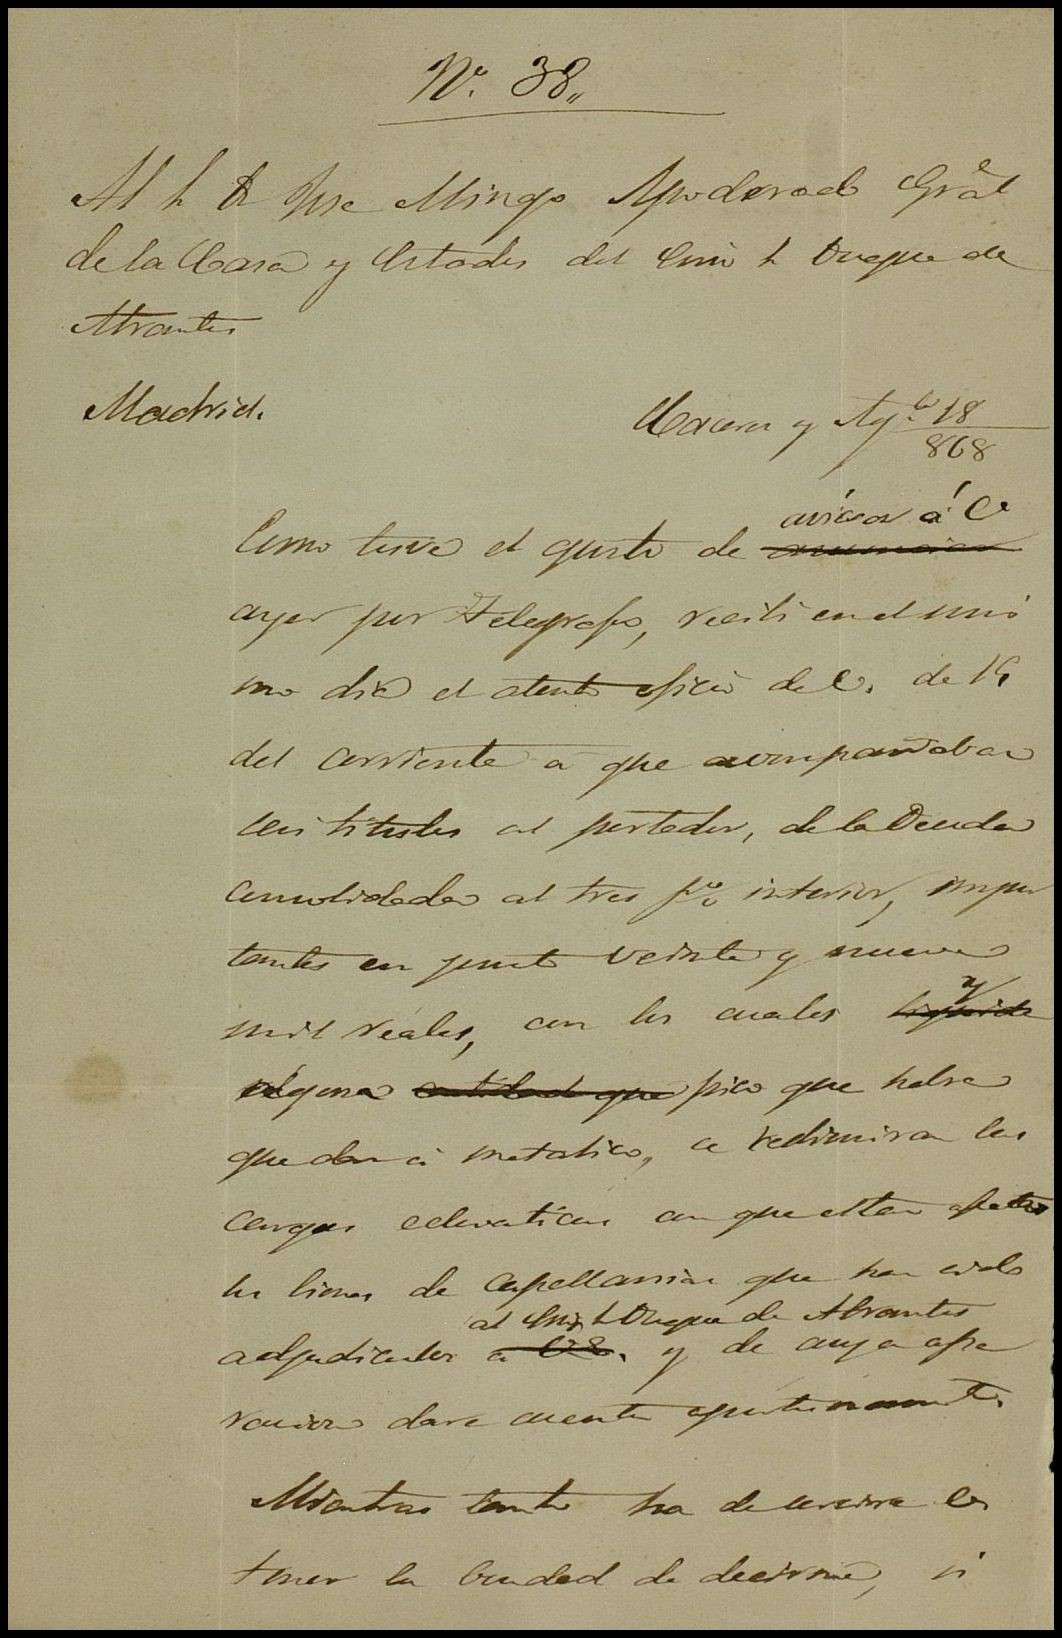 Nº. 38,,
Al Sr Dn Jose Mingo Apoderado Gral
de la Casa y Estados del Exmo Sr Duque de
Abrantes
Madrid.
Caceres y Agto 18
868
avisar á V
Como tuve el gusto de anunciar
ayer por Telegrafo, recibi en el mis
mo dia el atento oficio de V. de 15
del corriente a que acompañaban
seis titulos al portador, de la Deuda
consolidada al tres p% interior, impor
tantes en junto veinte y nueve
mil reales, con los cuales y
algun cantidad que pico que habra
que dar á metalico, se redimiran las
cargas eclesiasticas con que estan afectos
los bienes de capellanias que han sido
al Exmo Sr Duque de Abrantes
adjudicados a V.E. y de cuya ope
racion dare cuenta oportunamente.
Mientras tanto ha de servirse V.
tener la bondad de decirme, si